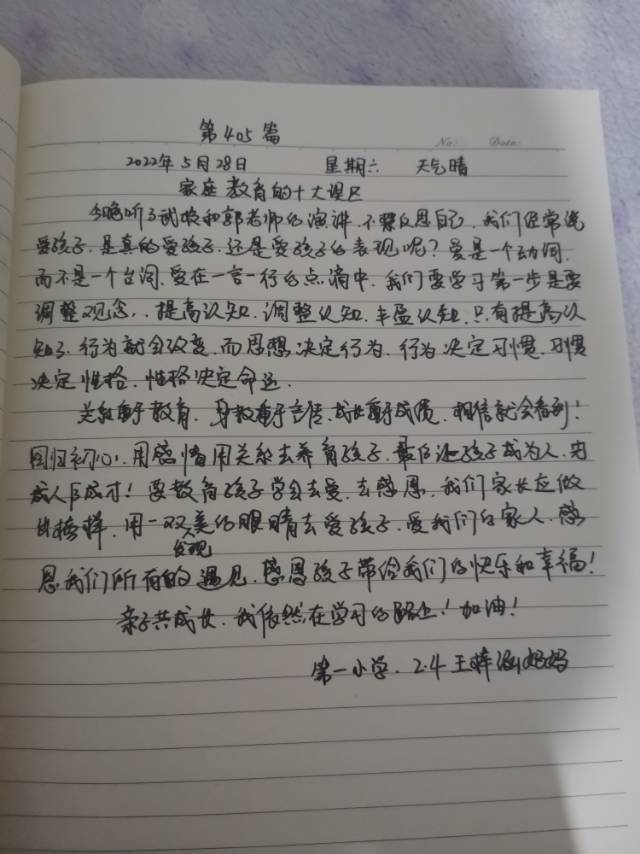 第405篇
No: Date:
2022年5月28日 星期六 天气晴
家庭教育的十大误区
今晚听了武校和郭老师的演讲,不禁反思自己,我们经常说
爱孩子,是真的爱孩子,还是爱孩子的表现呢?爱是一个动词,
而不是一个名词,爱在一言一行的点滴中,我们要学习第一步是要
调整观念,,提高认知,调整认知,丰盈认知,只有提高认
知了,行为就会改变,而思想决定行为,行为决定习惯,习惯
决定性格,性格决定命运.
关系重于教育,身教重于言传,成长重于成绩,相信就会看到!
回归初心,用感情用关系去养育孩子,最后让孩子成为人,先
成人后成才!要教育孩子学会去爱,去感恩,我们家长应做
出榜样,用一双发现美的眼睛去爱孩子,爱我们的家人,感
恩我们所有的遇见,感恩孩子带给我们的快乐和幸福!
亲子共成长,我依然在学习的路上!加油!
第一小学.2.4王梓涵妈妈